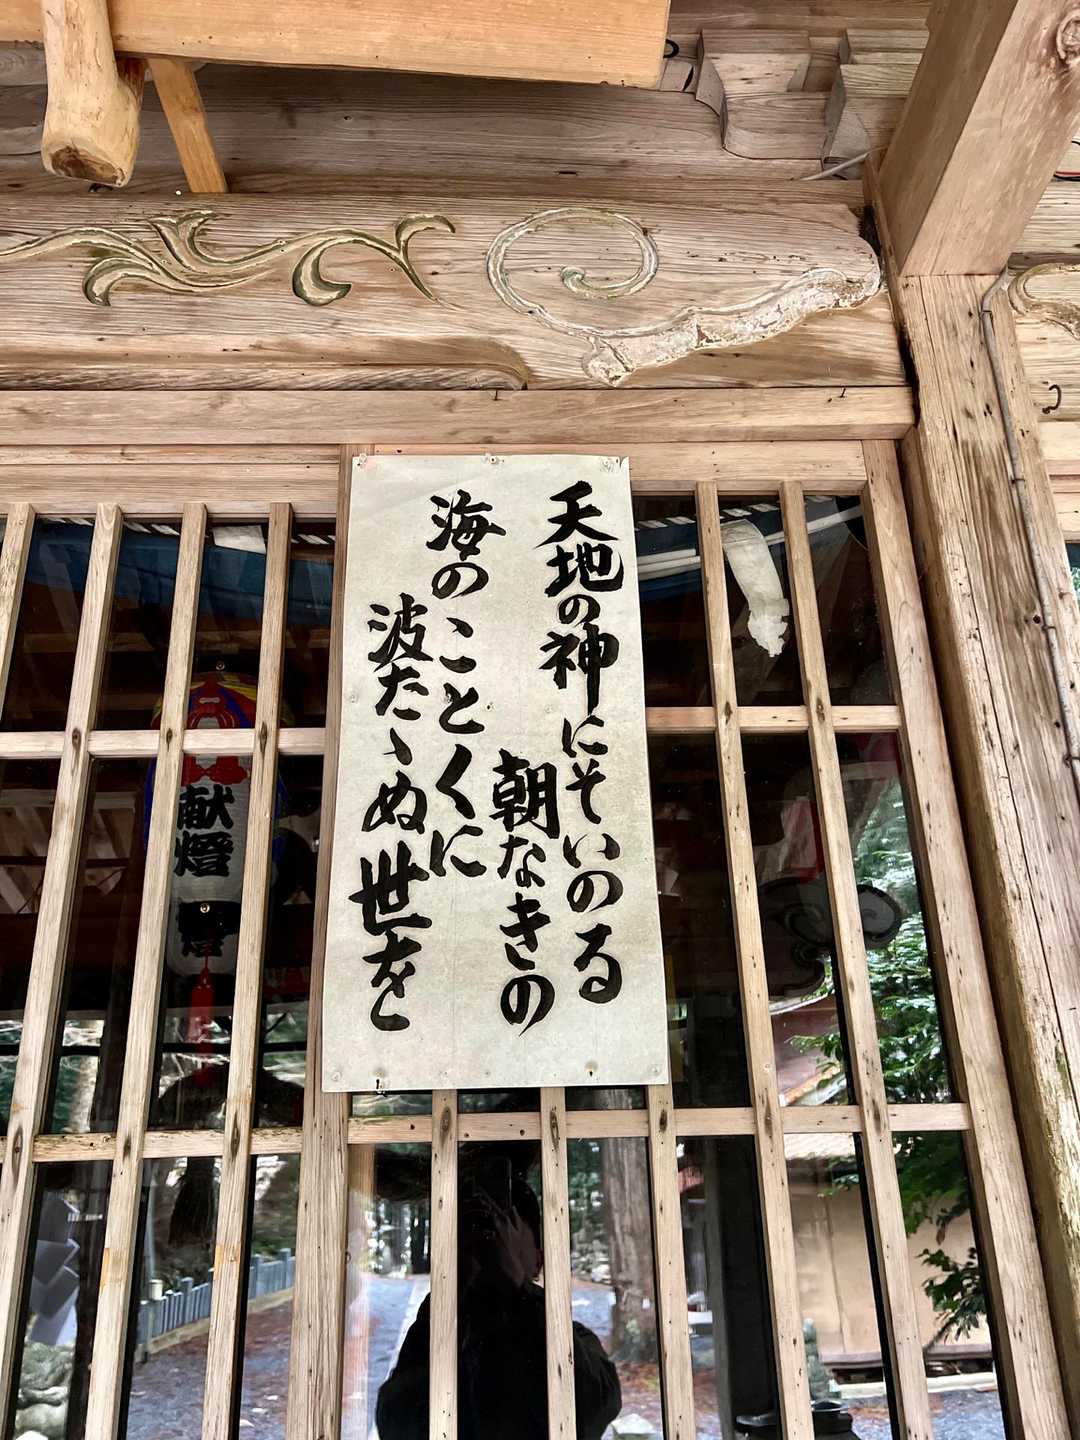 天地の神にそいのる
朝なきの
海のことくに
波たゝぬ世を
献燈